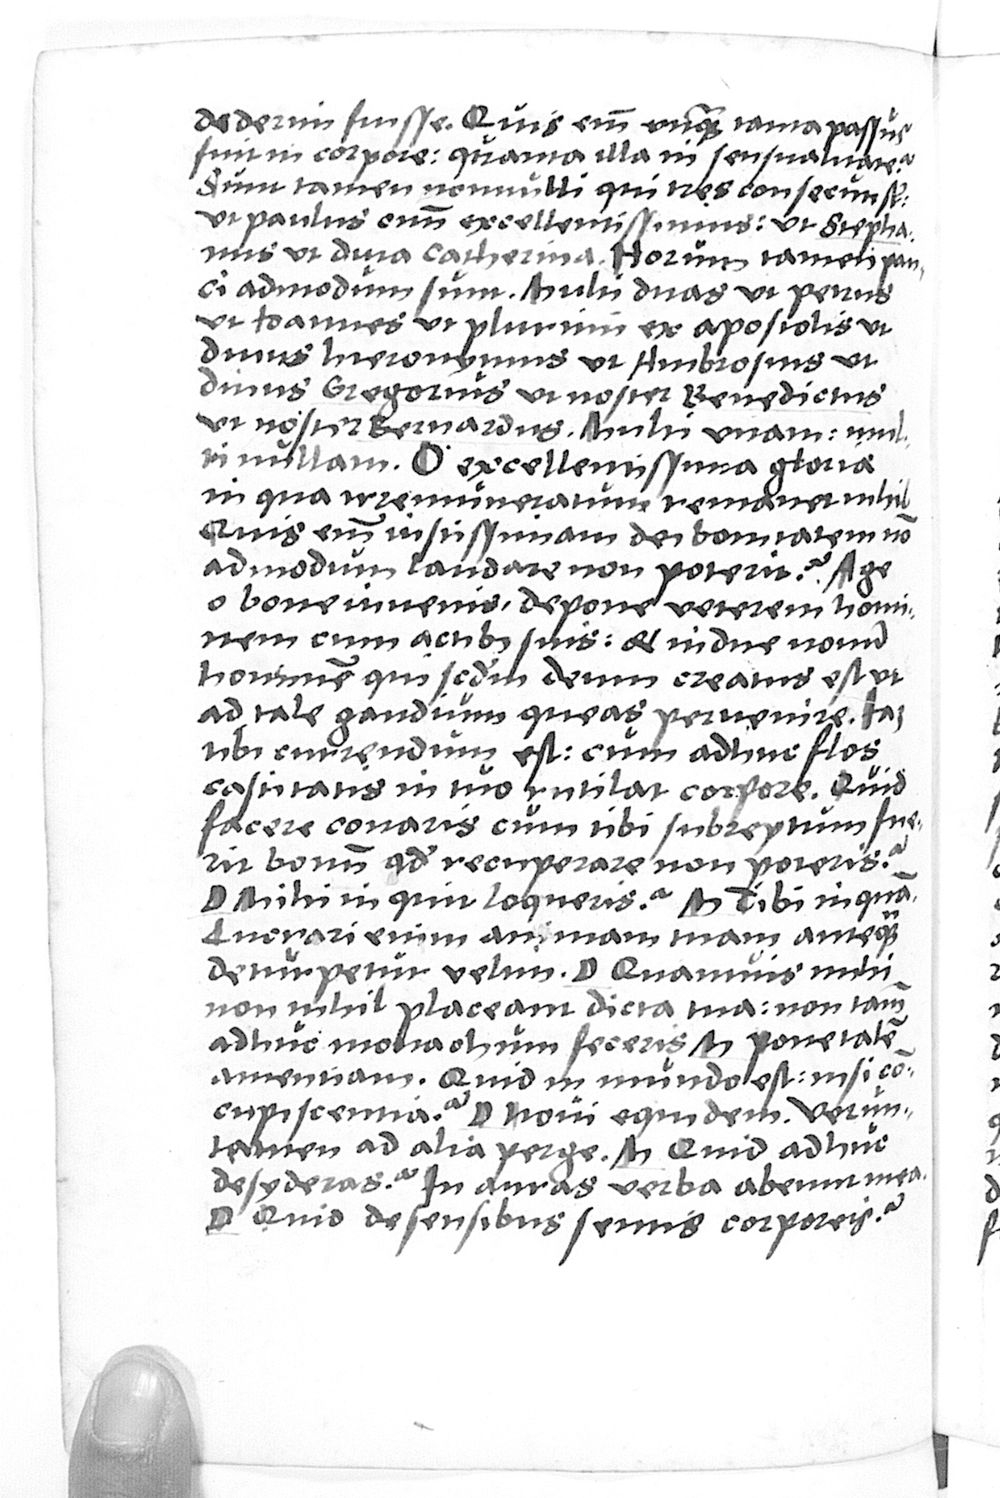 dederim fuisse. Quis em̄ unq̄ tanta passus
fuit in corpore: quanta illa in sensualitate?
Sunt tamen nonnulli qui tres consecuti st̄:
ut paulus om̄ excellentissimus: ut Stepha-
nus ut diva Catherina. Horum tamen pau-
ci admodum sunt. Multi duas ut petrus
ut Ioannes ut plurimi ex apostolis ut
divus hieronymus ut Ambrosius ut
divus Gregorius ut noster Benedictus
ut noster Bernardus. Multi unam: mul-
ti nullam. O excellentissima gloria
in qua irremuneratum remanet nihil
Quis em̄ iustissimam dei bonitatem nō
admodum laudare non poterit? Age
o bone iuvenis, depone veterem homi-
nem cum actibꝫ suis: & indue novū
hominē qui scd̄m deum creatus est ut
ad tale gaudium queas pervenire. Iaꝫ
tibi currendum est: cum adhuc flos
castitatis in tuo rutilat corpore. Quid
facere conaris cum tibi subreptum fue-
rit bonū qd̄ recuperare non poteris?
D Mihi in quit loqueris? M Tibi inquā.
Lucrari enim animam tuam anteq̄
deturpetur velim. D Quamvis mihi
non nihil placeant dicta tua: non tam̄
adhuc monachum feceris M pone talē
amentiam. Quid in mundo est: nisi cō-
cupiscentia? D Novi equidem. Verun-
tamen ad alia perge. M Quid adhuc
desyderas? In auras verba abeunt mea.
D Quid de sensibus sentis corporeis?